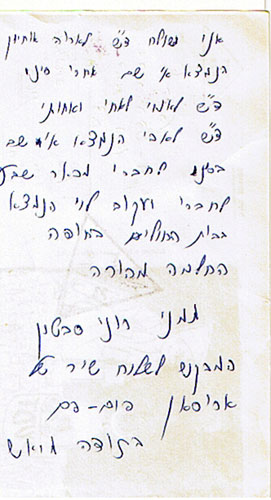 אני שולח ד"ש לארוה אוחיון
הנמצא אי שם אחרי סיני
ד"ש לאמי לאחי ואחותי
ד"ש לאבי הנמצא אי שם
לחברי מבאר שבע
לחברי יעקב לוי הנמצא
בבית החולים בחיפה
החלמה מהירה
ממני רוני סבטין
המבקש לשלוח שיר של
אריסאן פום-פם
בתודה מראש